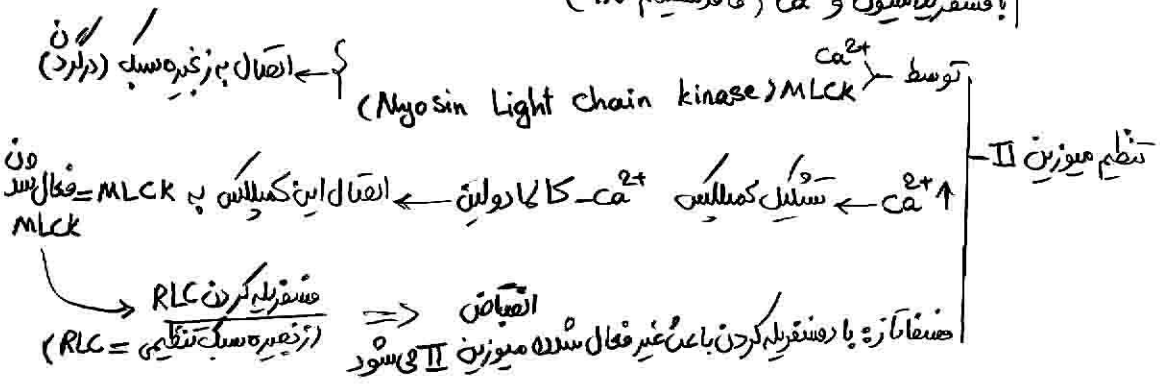 با فسفریلاسیون و Ca
تنظیم میوزین II
توسط Ca²⁺
MLCK (Myosin Light chain kinase) ← اتصال به زنجیره سبک (در گردن)
↑Ca²⁺ ← تشکیل کمپلکس Ca²⁺-کالمادولین ← اتصال این کمپلکس به MLCK = فعال شدن MLCK
→ فسفریله کردن RLC => انقباض
(RLC = زنجیره سبک تنظیمی)
فسفاتاز: با دفسفریله کردن باعث غیر فعال شدن میوزین II می شود